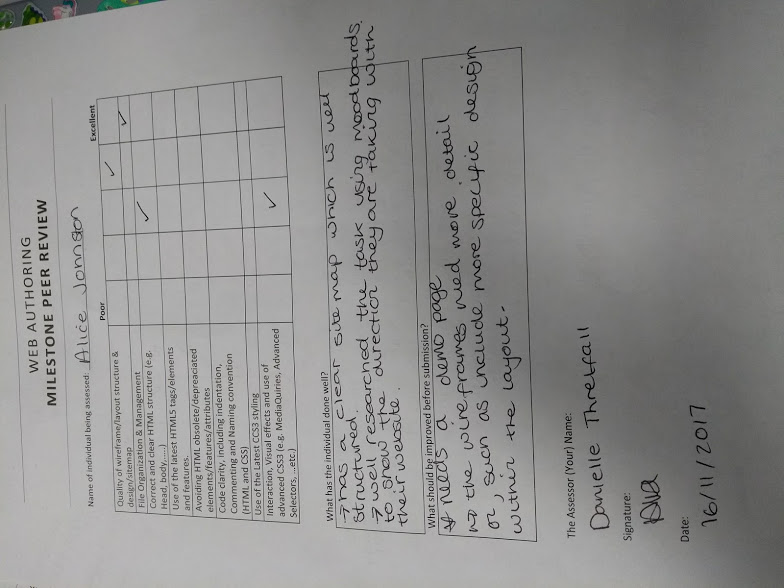 WEB AUTHORING
MILESTONE PEER REVIEW
Name of individual being assessed: Alice Johnson
Poor Excellent
Quality of wireframe/layout structure &
design/sitemap ✓
File Organization & Management ✓
Correct and clear HTML structure (e.g.
Head, body,....) ✓
Use of the latest HTML5 tags/elements
and features.
Avoiding HTML obsolete/depreaciated
elements/features/attributes
Code clarity, including indentation,
Commenting and Naming convention
(HTML and CSS)
Use of the Latest CCS3 styling
Interaction, Visual effects and use of
advanced CSS3 (e.g. MediaQuiries, Advanced
Selectors, ...etc.) ✓
What has the individual done well?
→ has a clear sitemap which is well
structured.
→ well researched the task using moodboards.
to show the direction they are taking with
their website.
What should be improved before submission?
* needs a demo page
→ the wireframes need more detail
or, such as include more specific design
within the layout.
The Assessor (Your) Name:
Danielle Threlfall
Signature:
Date:
16/11/2017